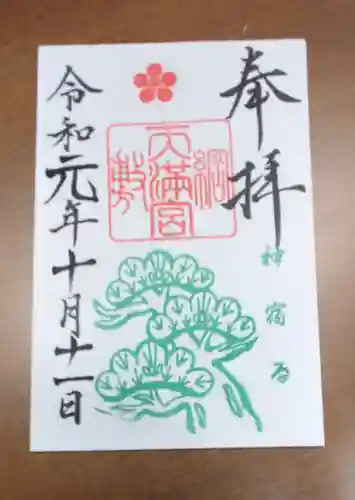 奉拝
綱敷天満宮
神宿る
令和元年十月十一日